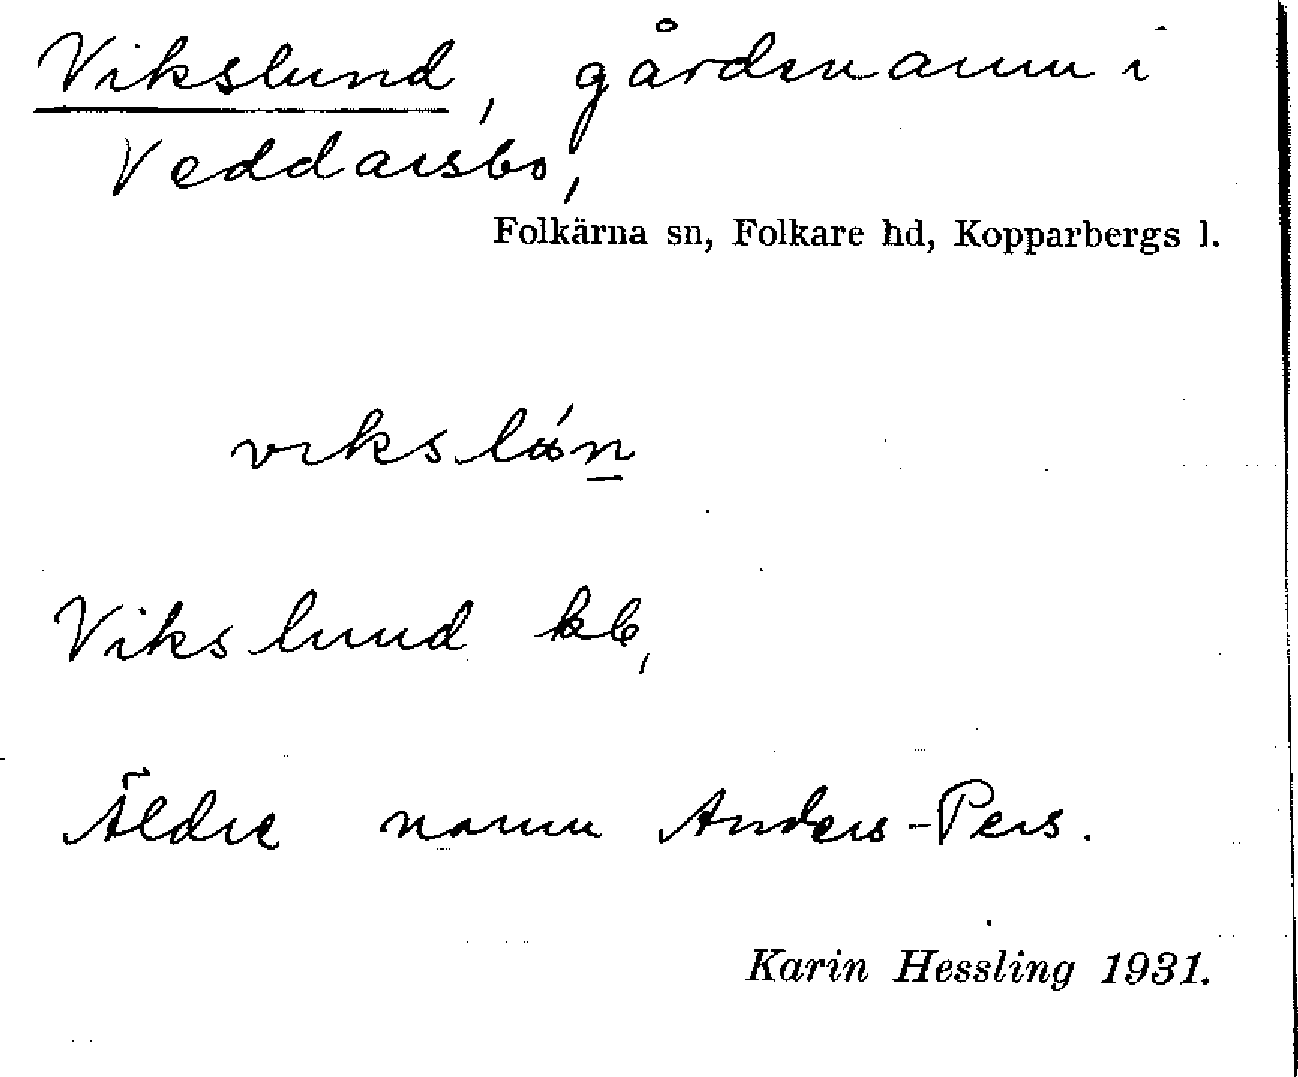 Vikslund, gårdsnamn i
Veddarsbo,
Folkärna sn, Folkare hd, Kopparbergs l.
Vikslund
Äldre namn Anders-Pers.
Karin Hessling 1931.